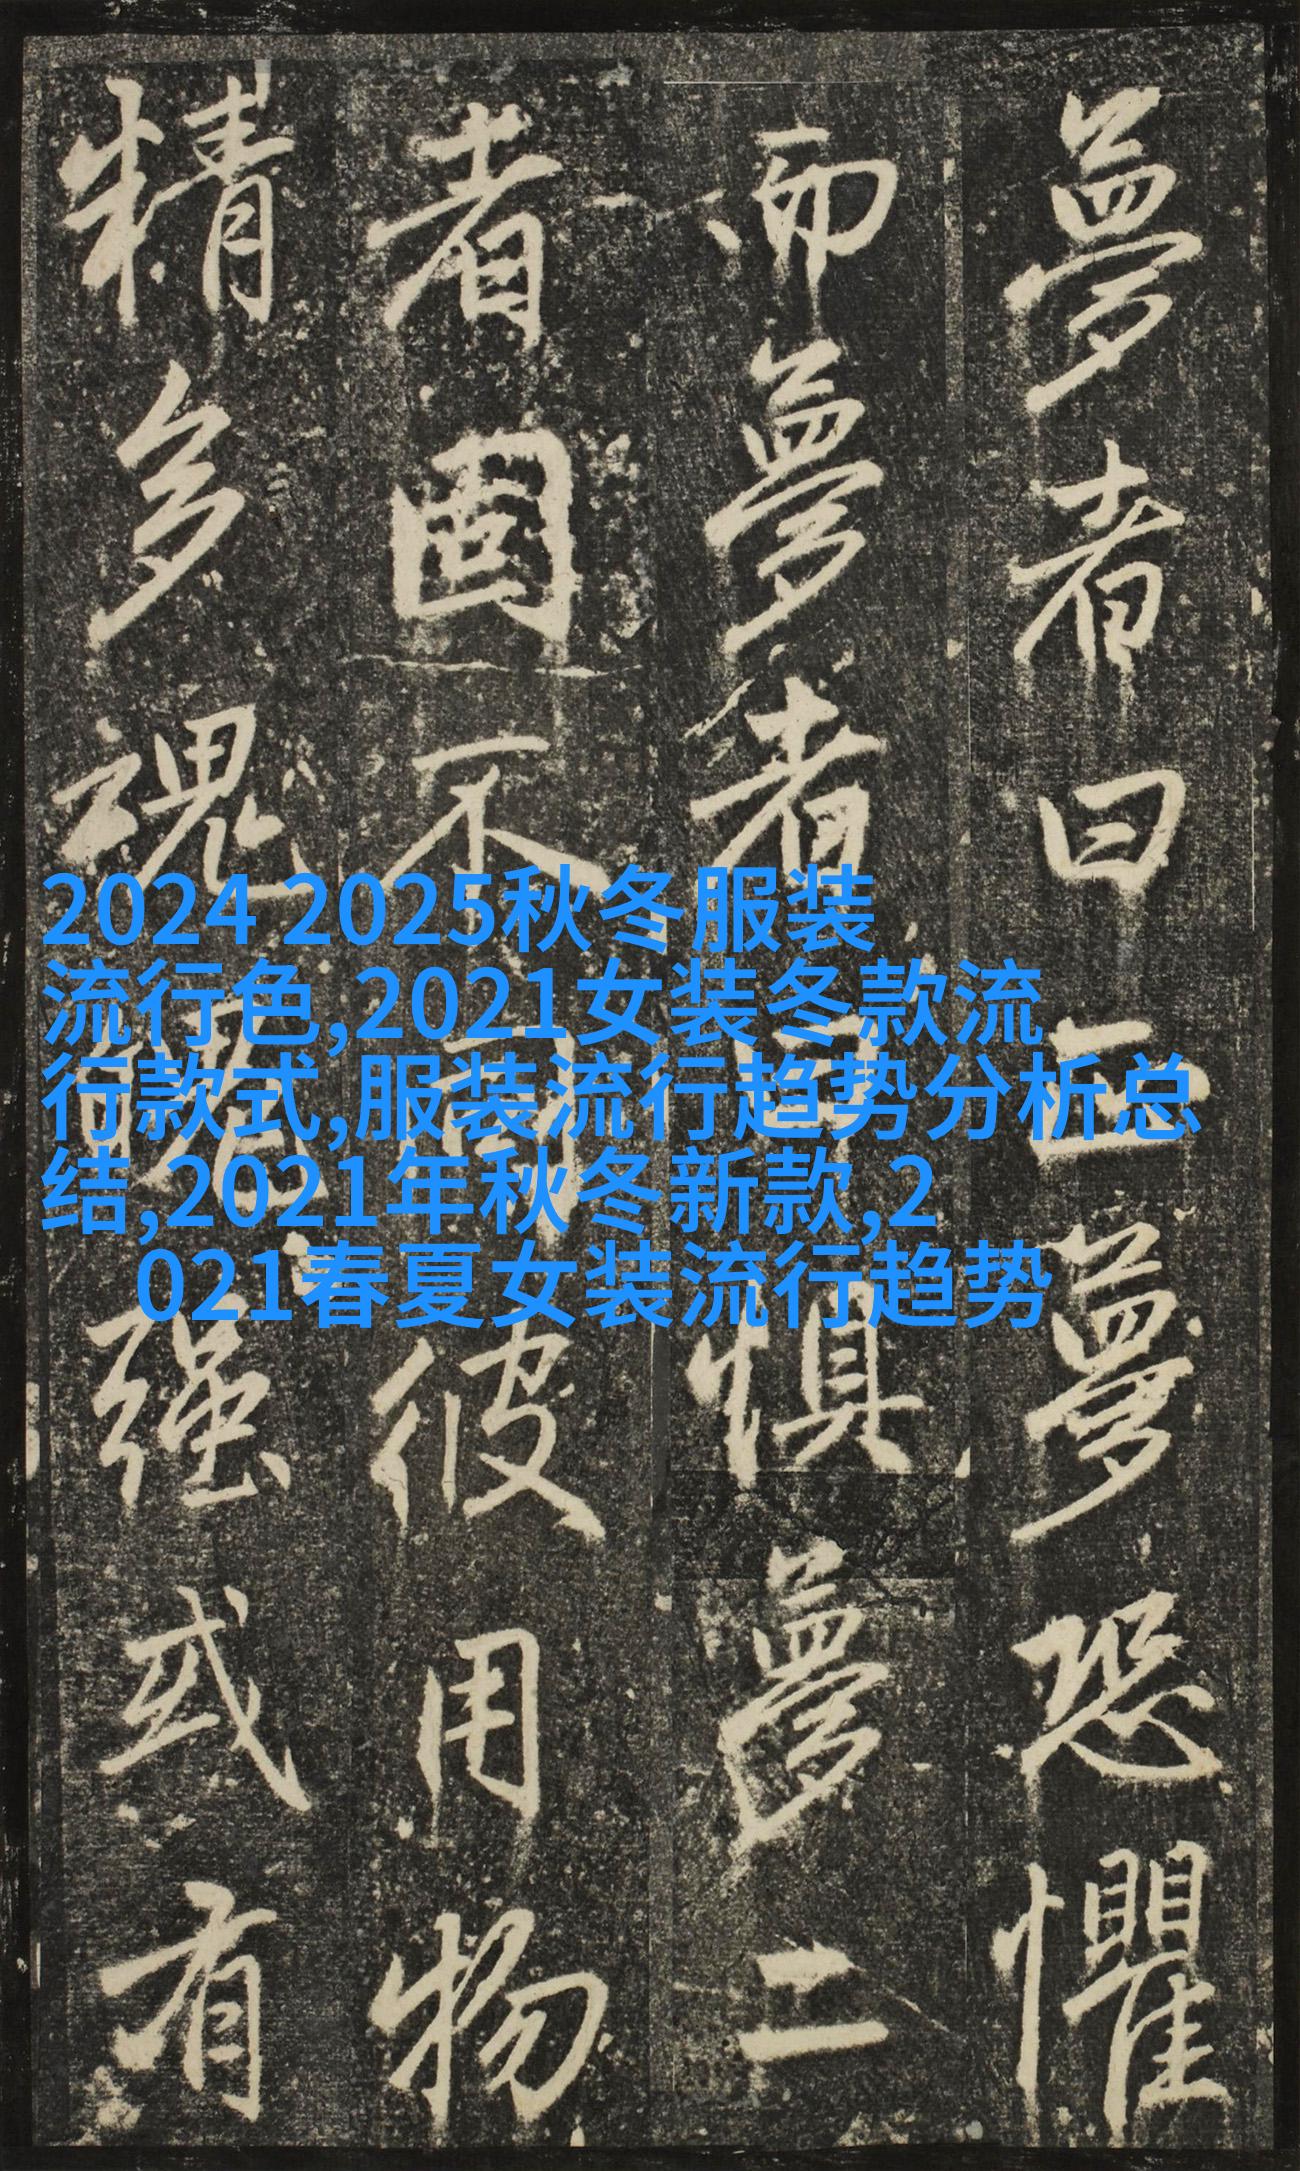 夢者曰夢恐懼
而夢者曰懼夢二
者固不同彼用物
精多魂魄强或有
2024 2025秋冬服装
流行色,2021女装冬款流
行款式,服装流行趋势分析总
结,2021年秋冬新款,2
021春夏女装流行趋势